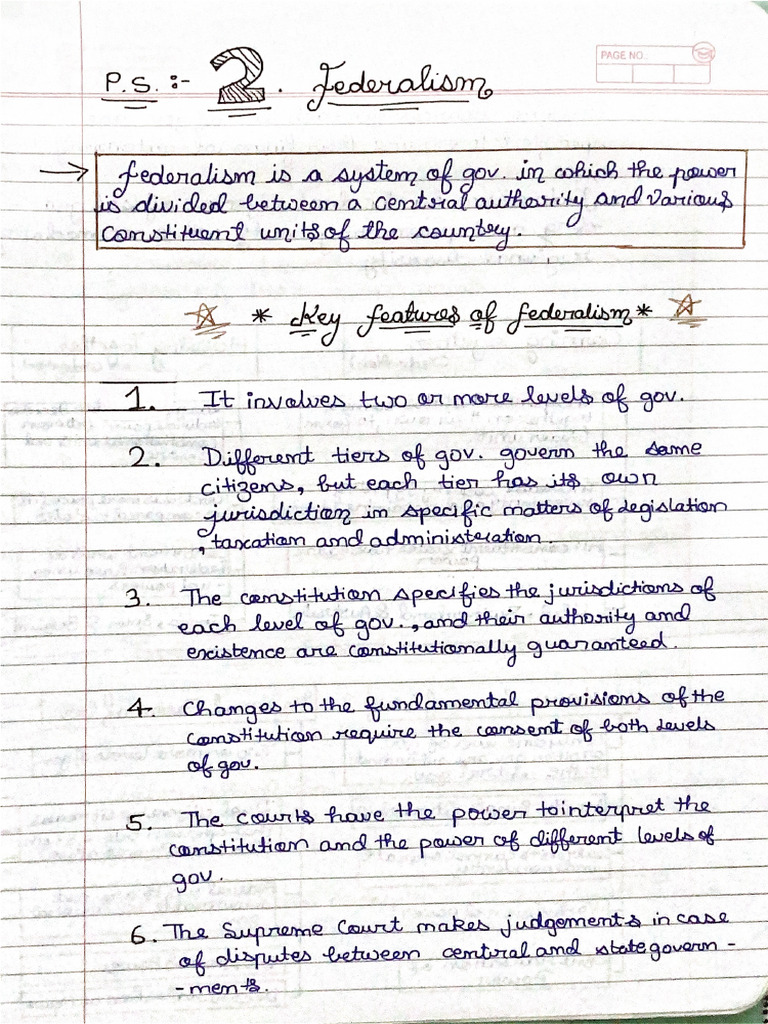 PAGE NO.:
P.S. :- 2. Federalism
→ Federalism is a system of gov. in which the power
is divided between a central authority and various
constituent units of the country.
* Key features of federalism *
1. It involves two or more levels of gov.
2. Different tiers of gov. govern the same
citizens, but each tier has its own
jurisdiction in specific matters of legislation
, taxation and administeration.
3. The constitution specifies the jurisdictions of
each level of gov., and their authority and
existence are constitutionally guaranteed.
4. Changes to the fundamental provisions of the
constitution require the consent of both levels
of gov.
5. The courts have the power to interpret the
constitution and the power of different levels of
gov.
6. The Supreme Court makes judgements in case
of disputes between central and state govern-
-ments.